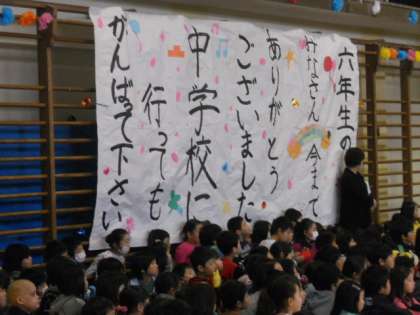 六年生の
みなさん 今まで
ありがとう
ございました
中学校に
行っても
がんばって下さい